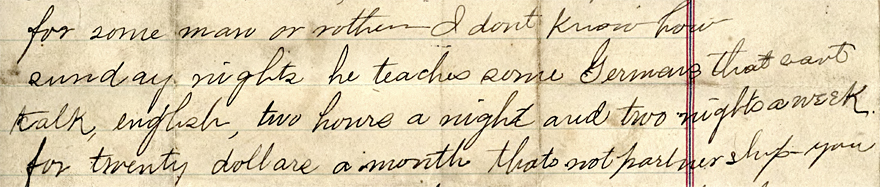 for some man or rother I dont know how
sunday nights he teaches some Germans that cant
talk, english, two hours a night and two nights a week.
for twenty dollars a month thats not partnership you